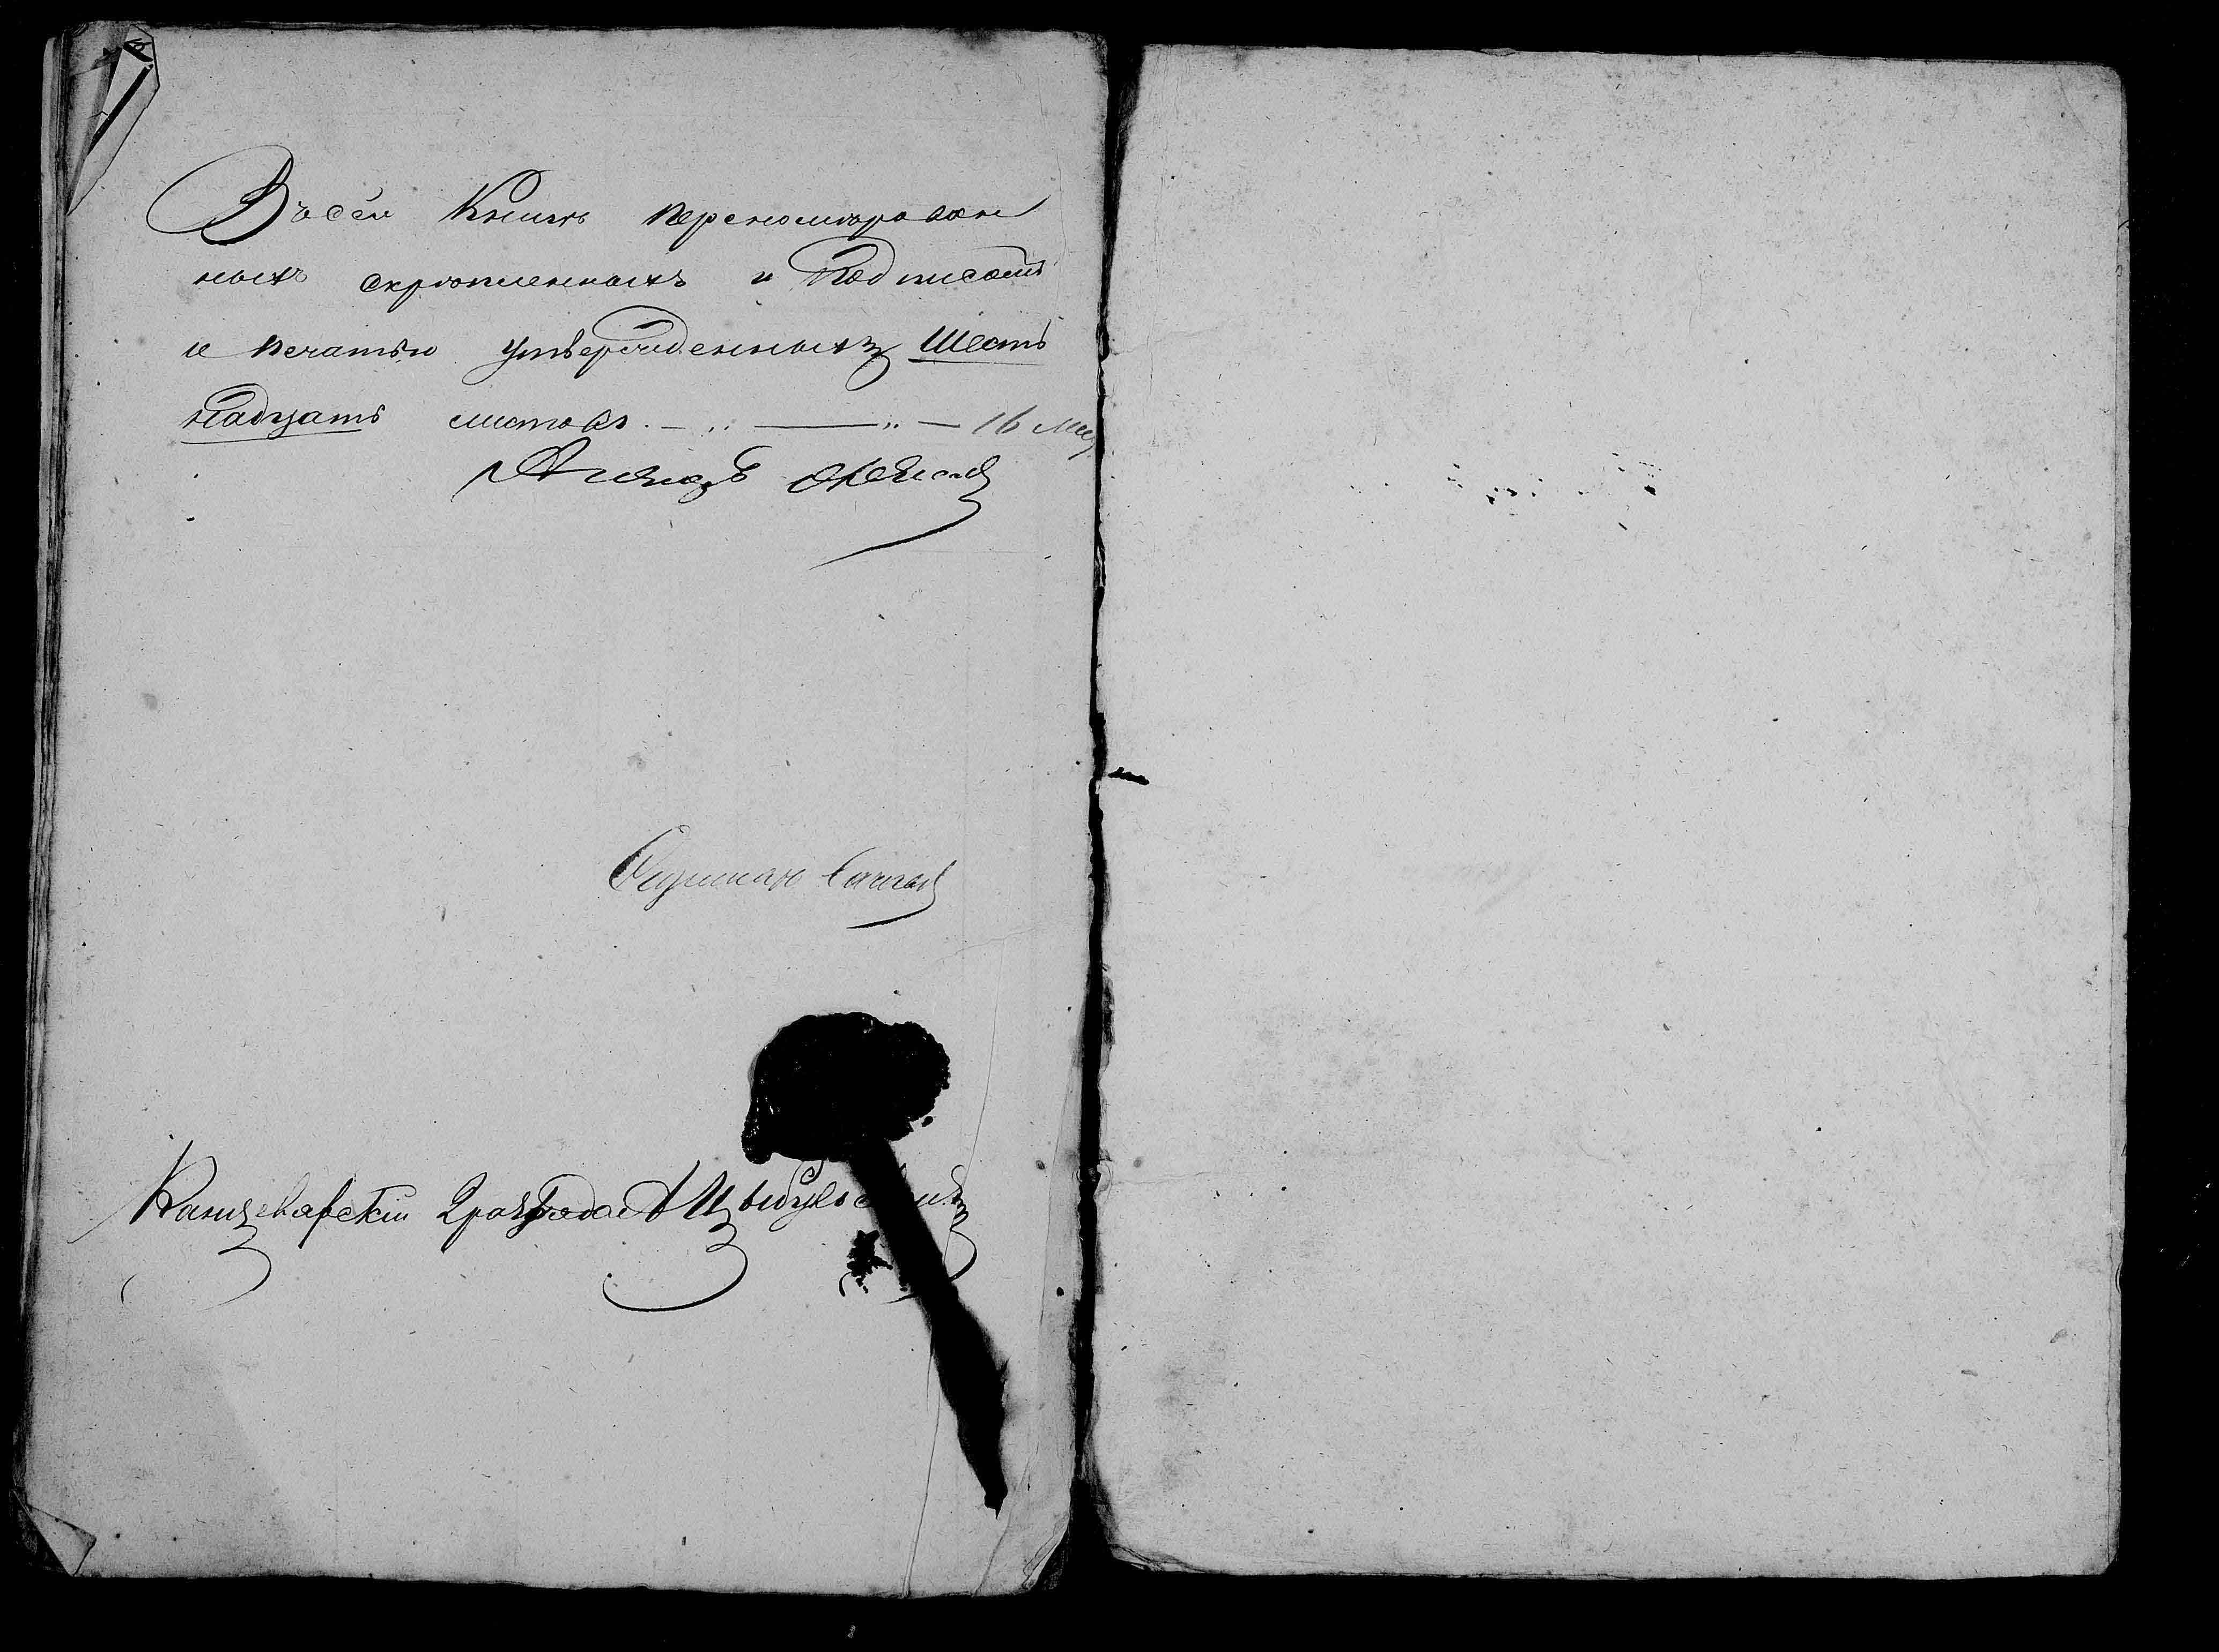 Въ сей Книгѣ перенумерован
ныхъ скрѣпленныхъ и Подписомъ
и печатью утвержденныхъ Шесть
надцать листовъ. — „ — „ — 16 лис
Канцелярскій 2 разряда А Цыбульскій